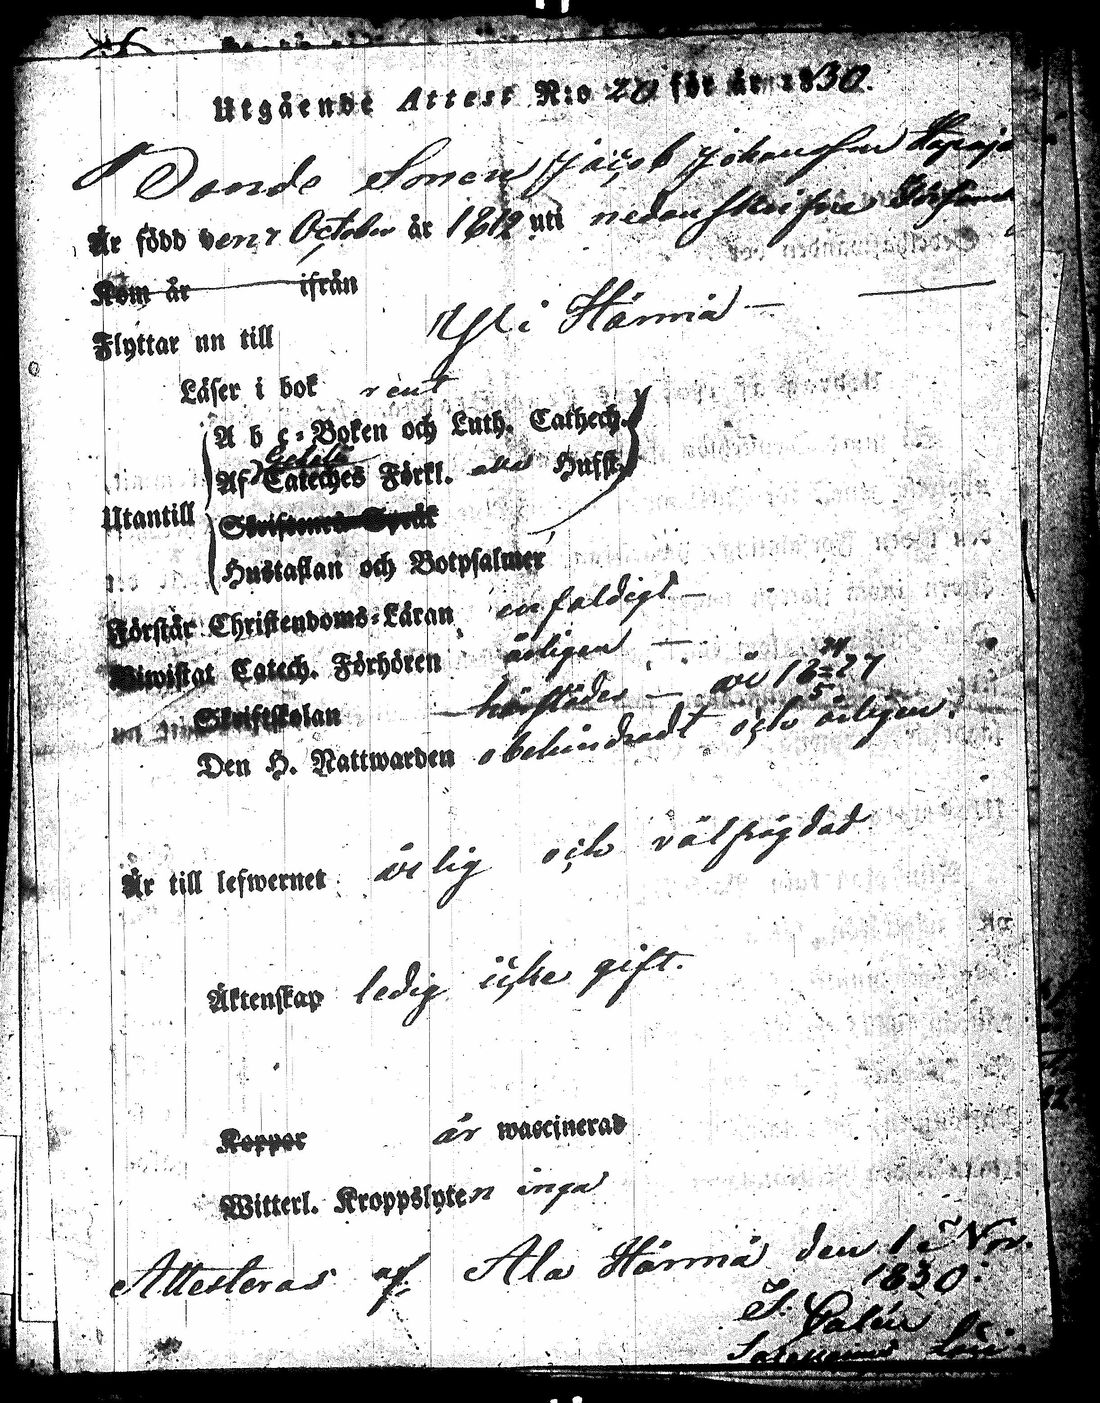 Utgående Attest N:o 20 för år 1830.
Bonde Sonen Jacob Johansson
Är född den 7 October år 1812 uti nedanskrifne
Kom år ifrån
Flyttar nu till Ylihärmä
Läser i bok rent
A b c-Boken och Luth. Cathech.
Af Cateches Förkl. Hust.
Utantill
Skriftenes Språk
Hustaflan och Botpsalmer
Förstår Christendoms-Läran enfaldigt
Biwistat Catech. Förhören årligen
Skriftskolan härstädes år 1827
Den H. Nattwarden obehindradt och årligen.
Är till lefwernet ärlig och välfrägdad
Äktenskap ledig icke gift.
Koppor är waccinerad
Witterl. Kroppslyten inga
Attesteras af Ala Härmä den 1 Nov.
1830.